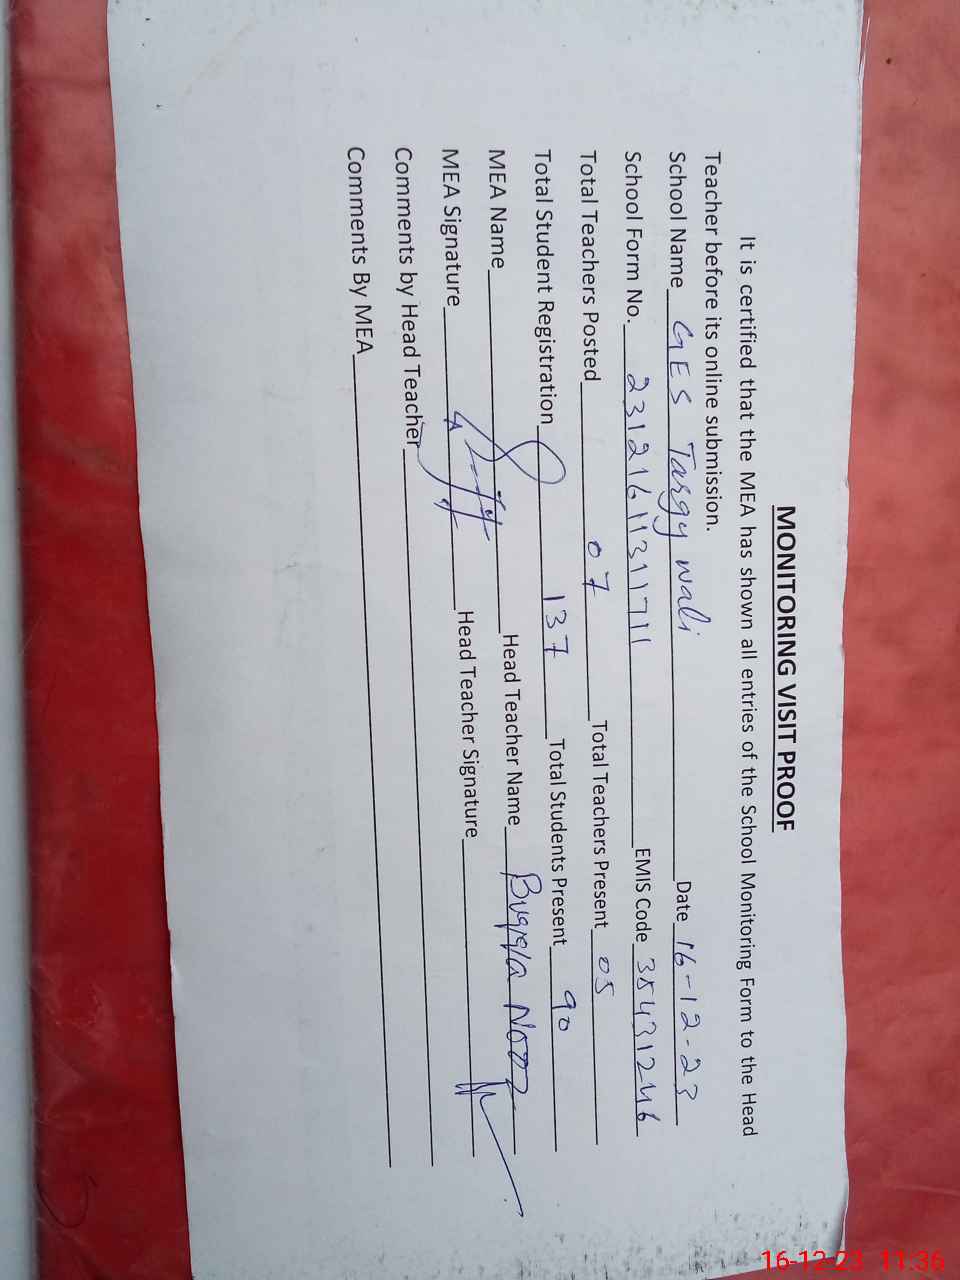 MONITORING VISIT PROOF
It is certified that the MEA has shown all entries of the School Monitoring Form to the Head
Teacher before its online submission.
School Name GES Targy wali Date 16-12-23
School Form No. 23121611311711 EMIS Code 38431246
Total Teachers Posted 07 Total Teachers Present 05
Total Student Registration 137 Total Students Present 90
MEA Name Head Teacher Name Bugga Noor
MEA Signature Head Teacher Signature
Comments by Head Teacher
Comments By MEA
16-12-23 11:36